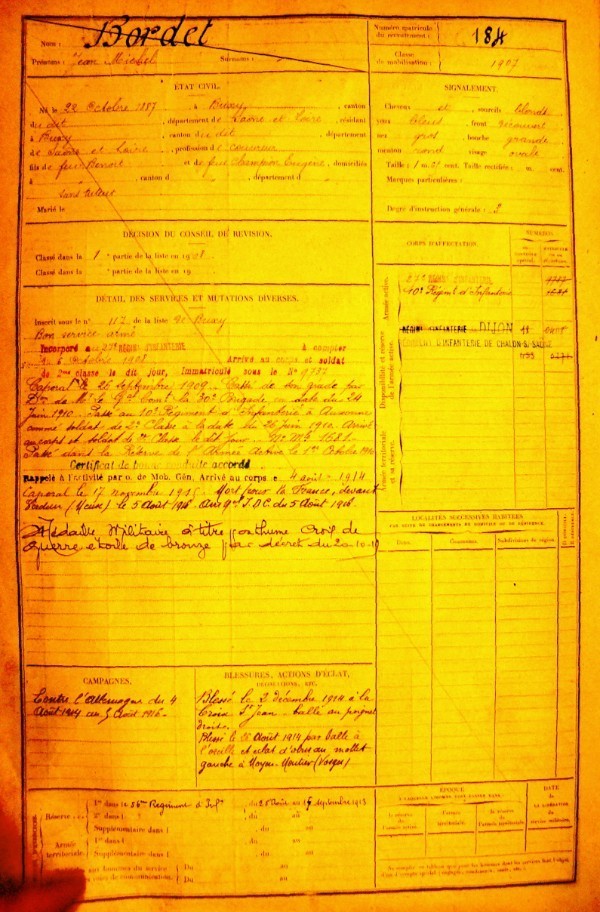 Nom : Bordet
Prénoms : Jean Michel Surnoms :
Numéro matricule du recrutement : 184
Classe de mobilisation : 1907
ÉTAT CIVIL.
Né le 22 Octobre 1887, à Buxy, canton
du dit, département de Saône et Loire, résidant
à Buxy, canton du dit, département
de Saône et Loire, profession de
fils de feu Benoit et de feue Champion Eugénie, domiciliés
à , canton d , département d
Marié le
SIGNALEMENT.
Cheveux et sourcils blonds
yeux bleus, front découvert
nez gros, bouche grande
menton rond visage ovale
Taille : 1 m. cent. Taille rectifiée : m. cent.
Marques particulières :
Degré d'instruction générale : 3
DÉCISION DU CONSEIL DE RÉVISION.
Classé dans la 1 e partie de la liste en 1908
Classé dans la e partie de la liste en 19
DÉTAIL DES SERVICES ET MUTATIONS DIVERSES.
Inscrit sous le n° 112 de la liste de Buxy
Bon service armé
Incorporé au 27e RÉGIMENT D'INFANTERIE à compter
du 6 Octobre 1908 Arrivé au corps et soldat
de 2me classe le dit jour, Immatriculé sous le N° 9737
Caporal le 26 Septembre 1909. Cassé de son grade par
Don de Mr le Gal Comt la 30e Brigade en date du 24
Juin 1910. Passé au 10e Régiment d'Infanterie à Auxonne
comme soldat de 2e Classe à la date du 26 juin 1910. Arrivé
au corps et soldat de 2me Classe le dit jour. No Mle 1681.
Passé dans la Réserve de l'Armée Active le 1er Octobre 1910
Certificat de bonne conduite accordé
Rappelé à l'activité par o. de Mob. Gén. Arrivé au corps le 4 août 1914
Caporal le 17 novembre 1915. Mort pour la France, devant
Verdun (Meuse) le 5 Août 1916 du 5 Août 1916
Médaille Militaire à titre posthume Croix de
guerre étoile de bronze par décret du 20-10-19
CORPS D'AFFECTATION.
NUMÉROS
Armée active.
27e RÉGIMENT D'INFANTERIE
10e Régiment d'Infanterie
Disponibilité et réserve de l'armée active.
RÉGIMENT D'INFANTERIE DIJON
D'INFANTERIE DE CHALON-S/SAÔNE
Armée territoriale et sa réserve.
LOCALITÉS SUCCESSIVES HABITÉES
PAR SUITE DE CHANGEMENTS DE DOMICILE OU DE RÉSIDENCE.
Dates. Communes. Subdivisions de région.
CAMPAGNES.
Contre l'Allemagne du 4
Août 1914 au 5 Août 1916
BLESSURES, ACTIONS D'ÉCLAT,
DÉCORATIONS, ETC.
Blessé le 2 décembre 1914 à la
Croix St Jean. balle au poignet
droit.
Blessé le Août 1914 par balle à
l'oreille et éclat d'obus au mollet
gauche à Moyen-Moutier (Vosges)
Réserve : 1re dans le 56me Régiment d'Infie, du 25 Août au 17 septembre 1913
2e dans l , du au
Supplémentaire dans l , du au
Armée territoriale : 1re dans l , du au
Supplémentaire dans l , du au
Du au
Du au
ÉPOQUE
la réserve de l'armée active.
l'armée territoriale.
la réserve de l'armée territoriale.
DATE
de
LA LIBÉRATION
du
service militaire.